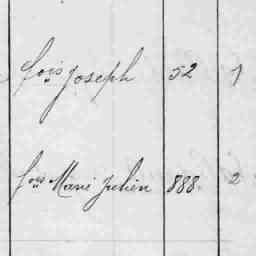 fois Joseph 52 1
fois Marie Julien 888. 2